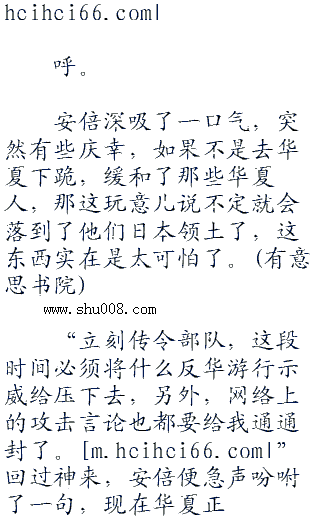 hcihci66.com|
呼。
安倍深吸了一口气，突
然有些庆幸，如果不是去华
夏下跪，缓和了那些华夏
人，那这玩意儿说不定就会
落到了他们日本领土了，这
东西实在是太可怕了。(有意
思书院)
www.shu008.com
“立刻传令部队，这段
时间必须将什么反华游行示
威给压下去，另外，网络上
的攻击言论也都要给我通通
封了。[m.hcihci66.com|”
回过神来，安倍便急声吩咐
了一句，现在华夏正